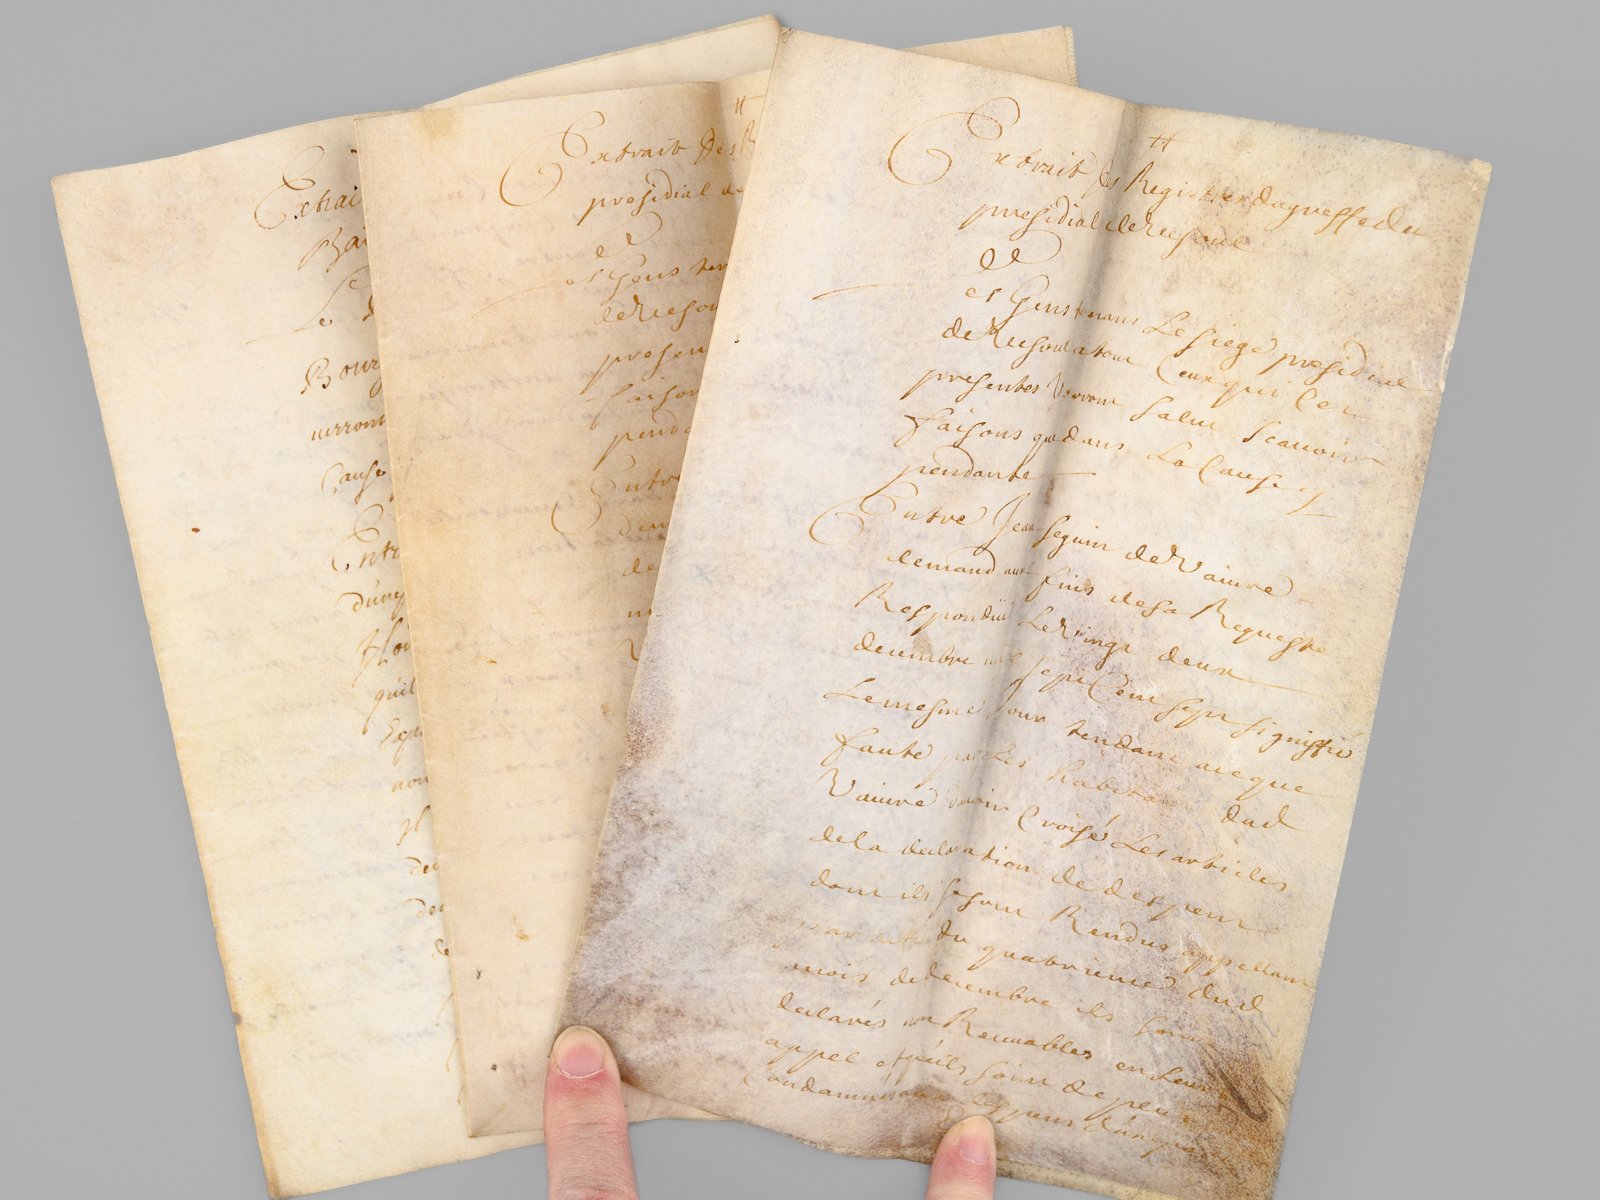 Extrai
Ba
Le
Bourg
verront
Cause
Entr
d'une
qu'il
nou
Extrait des R
presidial de
Les Gens ten
de Vesou
presen
faison
penda
Entre
dem
de
Extrait des Registres du greffe du
presidial de Vesoul
Les Gens tenans Le siege presidial
de Vesoul a tous Ceux qui Ces
presentes Verront salut scavoir
faisons que dans La Cause y
pendante
Entre Jean seguin de Vaivre
demand aux fins de sa Requeste
Respondüe Le Vingt deux
decembre mil sept Cent sept signiffié
Le mesme jour tendant acé que
faute par Les habitans dud
Vaivre d'avoir Croisé Les articles
de la declaration de despens
dont ils se sont Rendus appellans
par acte du quatrieme dud
mois de decembre ils soient
declarés non Recevables en Leur
appel et qu'ils soient de plus
Condamnés aux despens